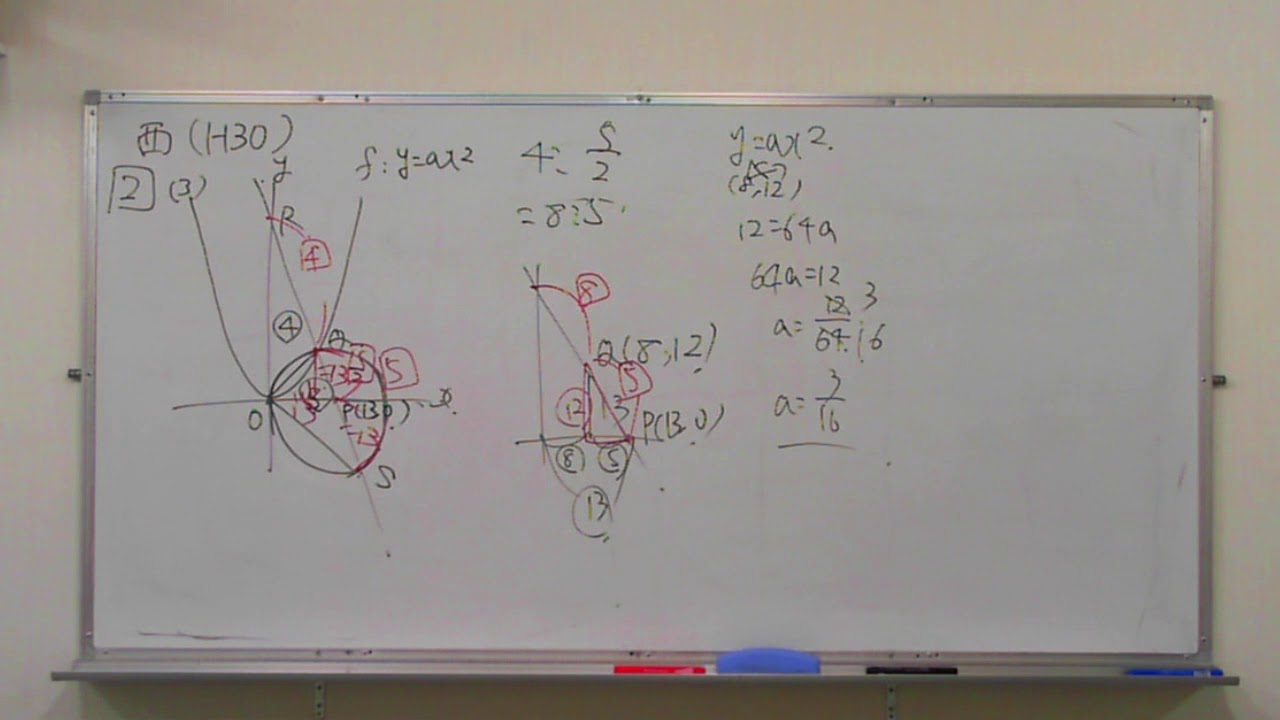 西(H30)
2 (3)
y
f:y=ax²
R
4
4
Q
5
O
P(13,0)
x
13
S
4:5/2
=8:5
8
Q(8,12)
12
5
P(13,0)
8
5
13
y=ax².
(8,12)
12=64a
64a=12
a=12/64 3 16
a=3/16